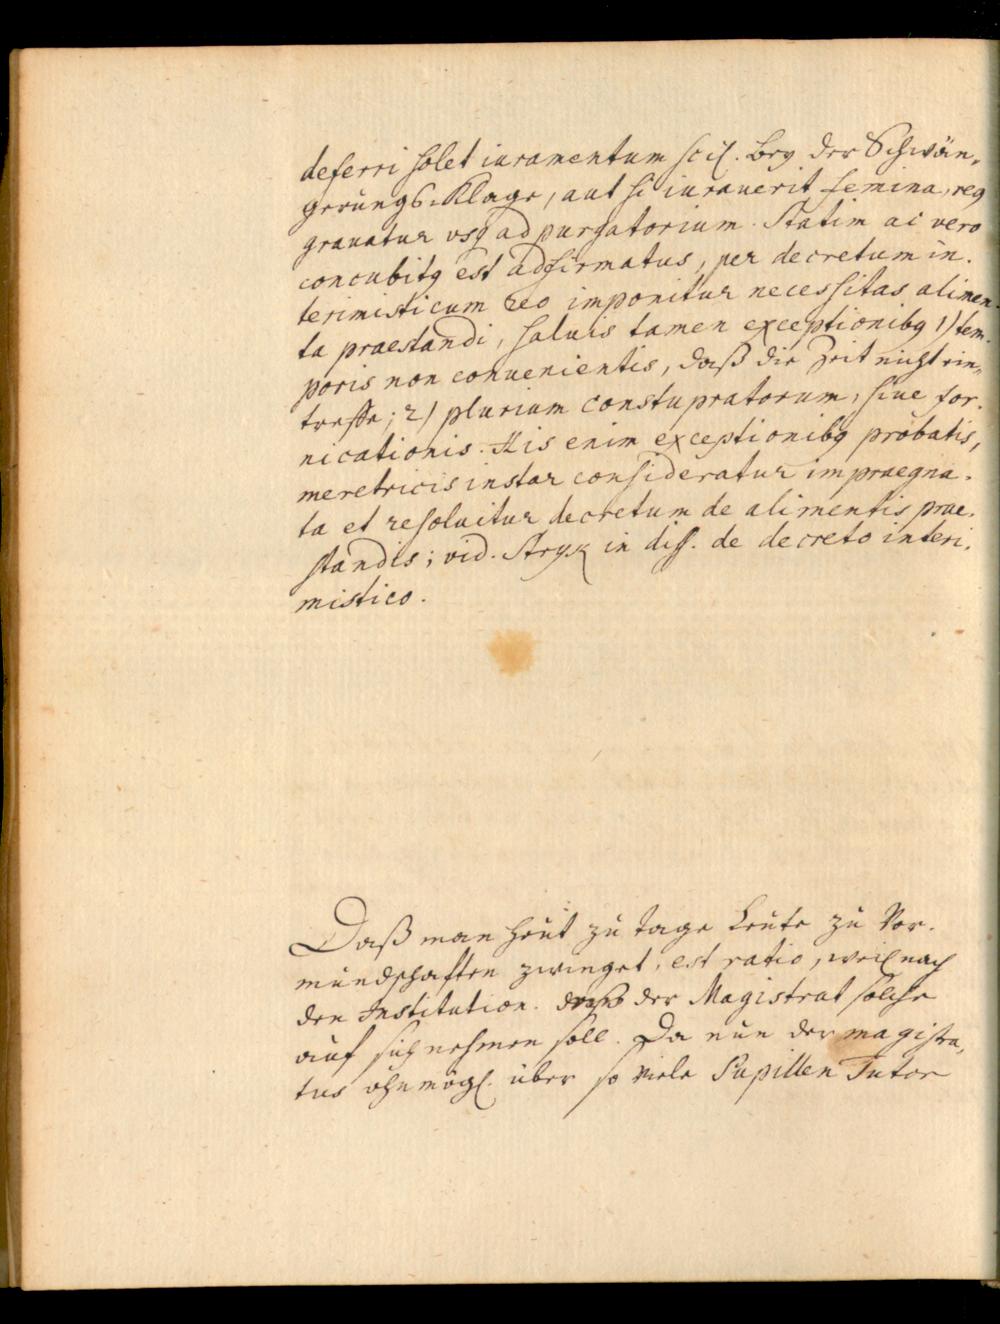 deferri solet iuramentum scil. bey der Schwän-
gerungs-Klage, aut si iurauerit femina, reg
grauatur vsq ad purgatorium. Statim ac vero
concubitg est adfirmatus, per decretum in-
terimisticum reo imponitur necessitas alimen-
ta praestandi, saluis tamen exceptionibg 1) tem-
poris non conuenientis, daß die Zeit nicht ein-
treffe; 2) plurium constupratorum, siue for-
nicationis. His enim exceptionibg probatis,
meretricis instar consideratur impraegna-
ta et resoluitur decretum de alimentis prae-
standis; vid. Stryk in diss. de decreto interi-
mistico.
Daß man heut zu tage Leute zu Vor-
mundschaften zwinget, est ratio, weil nach
den Institution. der Magistrat solche
auf sich nehmen soll. Da nun der magistra-
tus ohnmögl. über so viele Pupillen Tutor